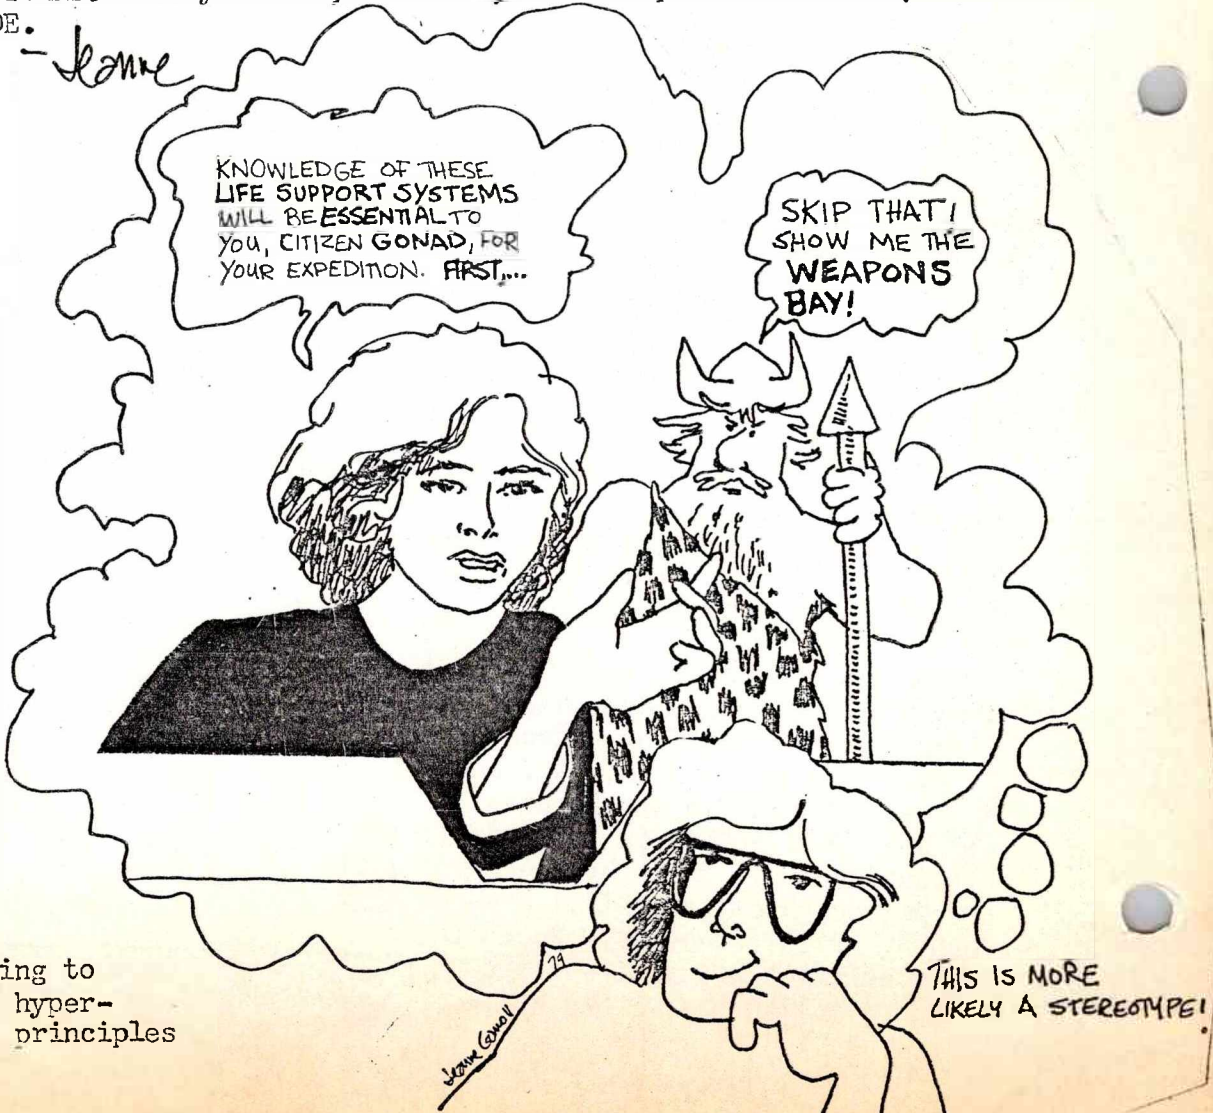 DE.
- Jeanne
KNOWLEDGE OF THESE
LIFE SUPPORT SYSTEMS
WILL BE ESSENTIAL TO
YOU, CITIZEN GONAD, FOR
YOUR EXPEDITION. FIRST,...
SKIP THAT!
SHOW ME THE
WEAPONS
BAY!
79
Jeanne Gomoll
THIS IS MORE
LIKELY A STEREOTYPE!
ing to
hyper-
principles